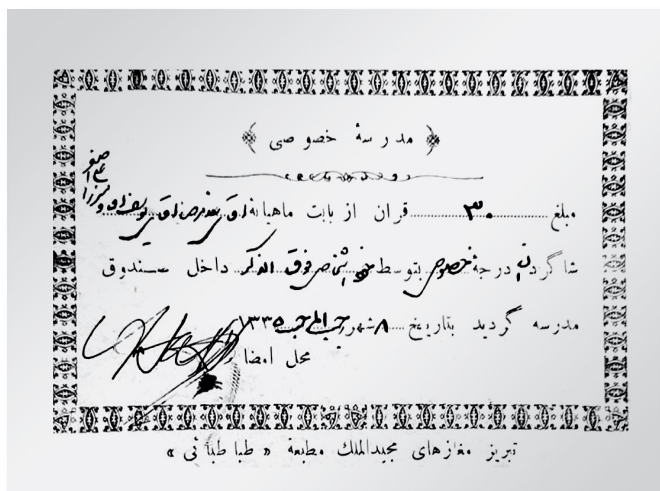 مدرسهٔ خصوصی
مبلغ ۳۰ قران از بابت ماهیانه
شاگردان درجهٔ خصوصی بتوسط فوق الذکر داخل صندوق
مدرسه گردید بتاریخ ۸ شهر رجب المرجب ۱۳۳۵
محل امضا
تبریز مغازهای مجیدالملک مطبعهٔ «طباطبائی»